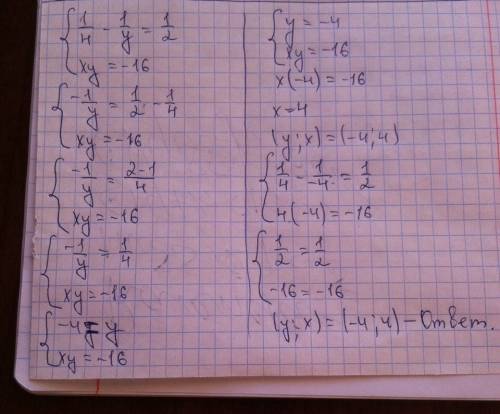 { 1/4 - 1/y = 1/2
{ xy = -16
{ -1/y = 1/2 - 1/4
{ xy = -16
{ -1/y = 2-1/4
{ xy = -16
{ -1/y = 1/4
{ xy = -16
{ -4 = y
{ xy = -16
{ y = -4
{ xy = -16
x(-4) = -16
x = 4
(y; x) = (-4; 4)
{ 1/4 - 1/-4 = 1/2
{ 4(-4) = -16
{ 1/2 = 1/2
{ -16 = -16
(y; x) = (-4; 4) - Ответ.